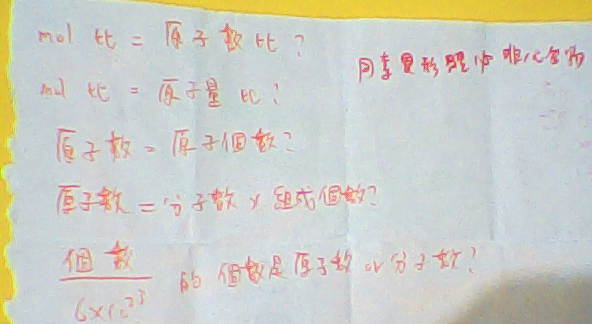 mol 比 = 原子數比?
mol 比 = 原子量比?
原子數 = 原子個數?
原子數 = 分子數 x 組成個數?
個數 / 6x10²³ 的個數是原子數 or 分子數?